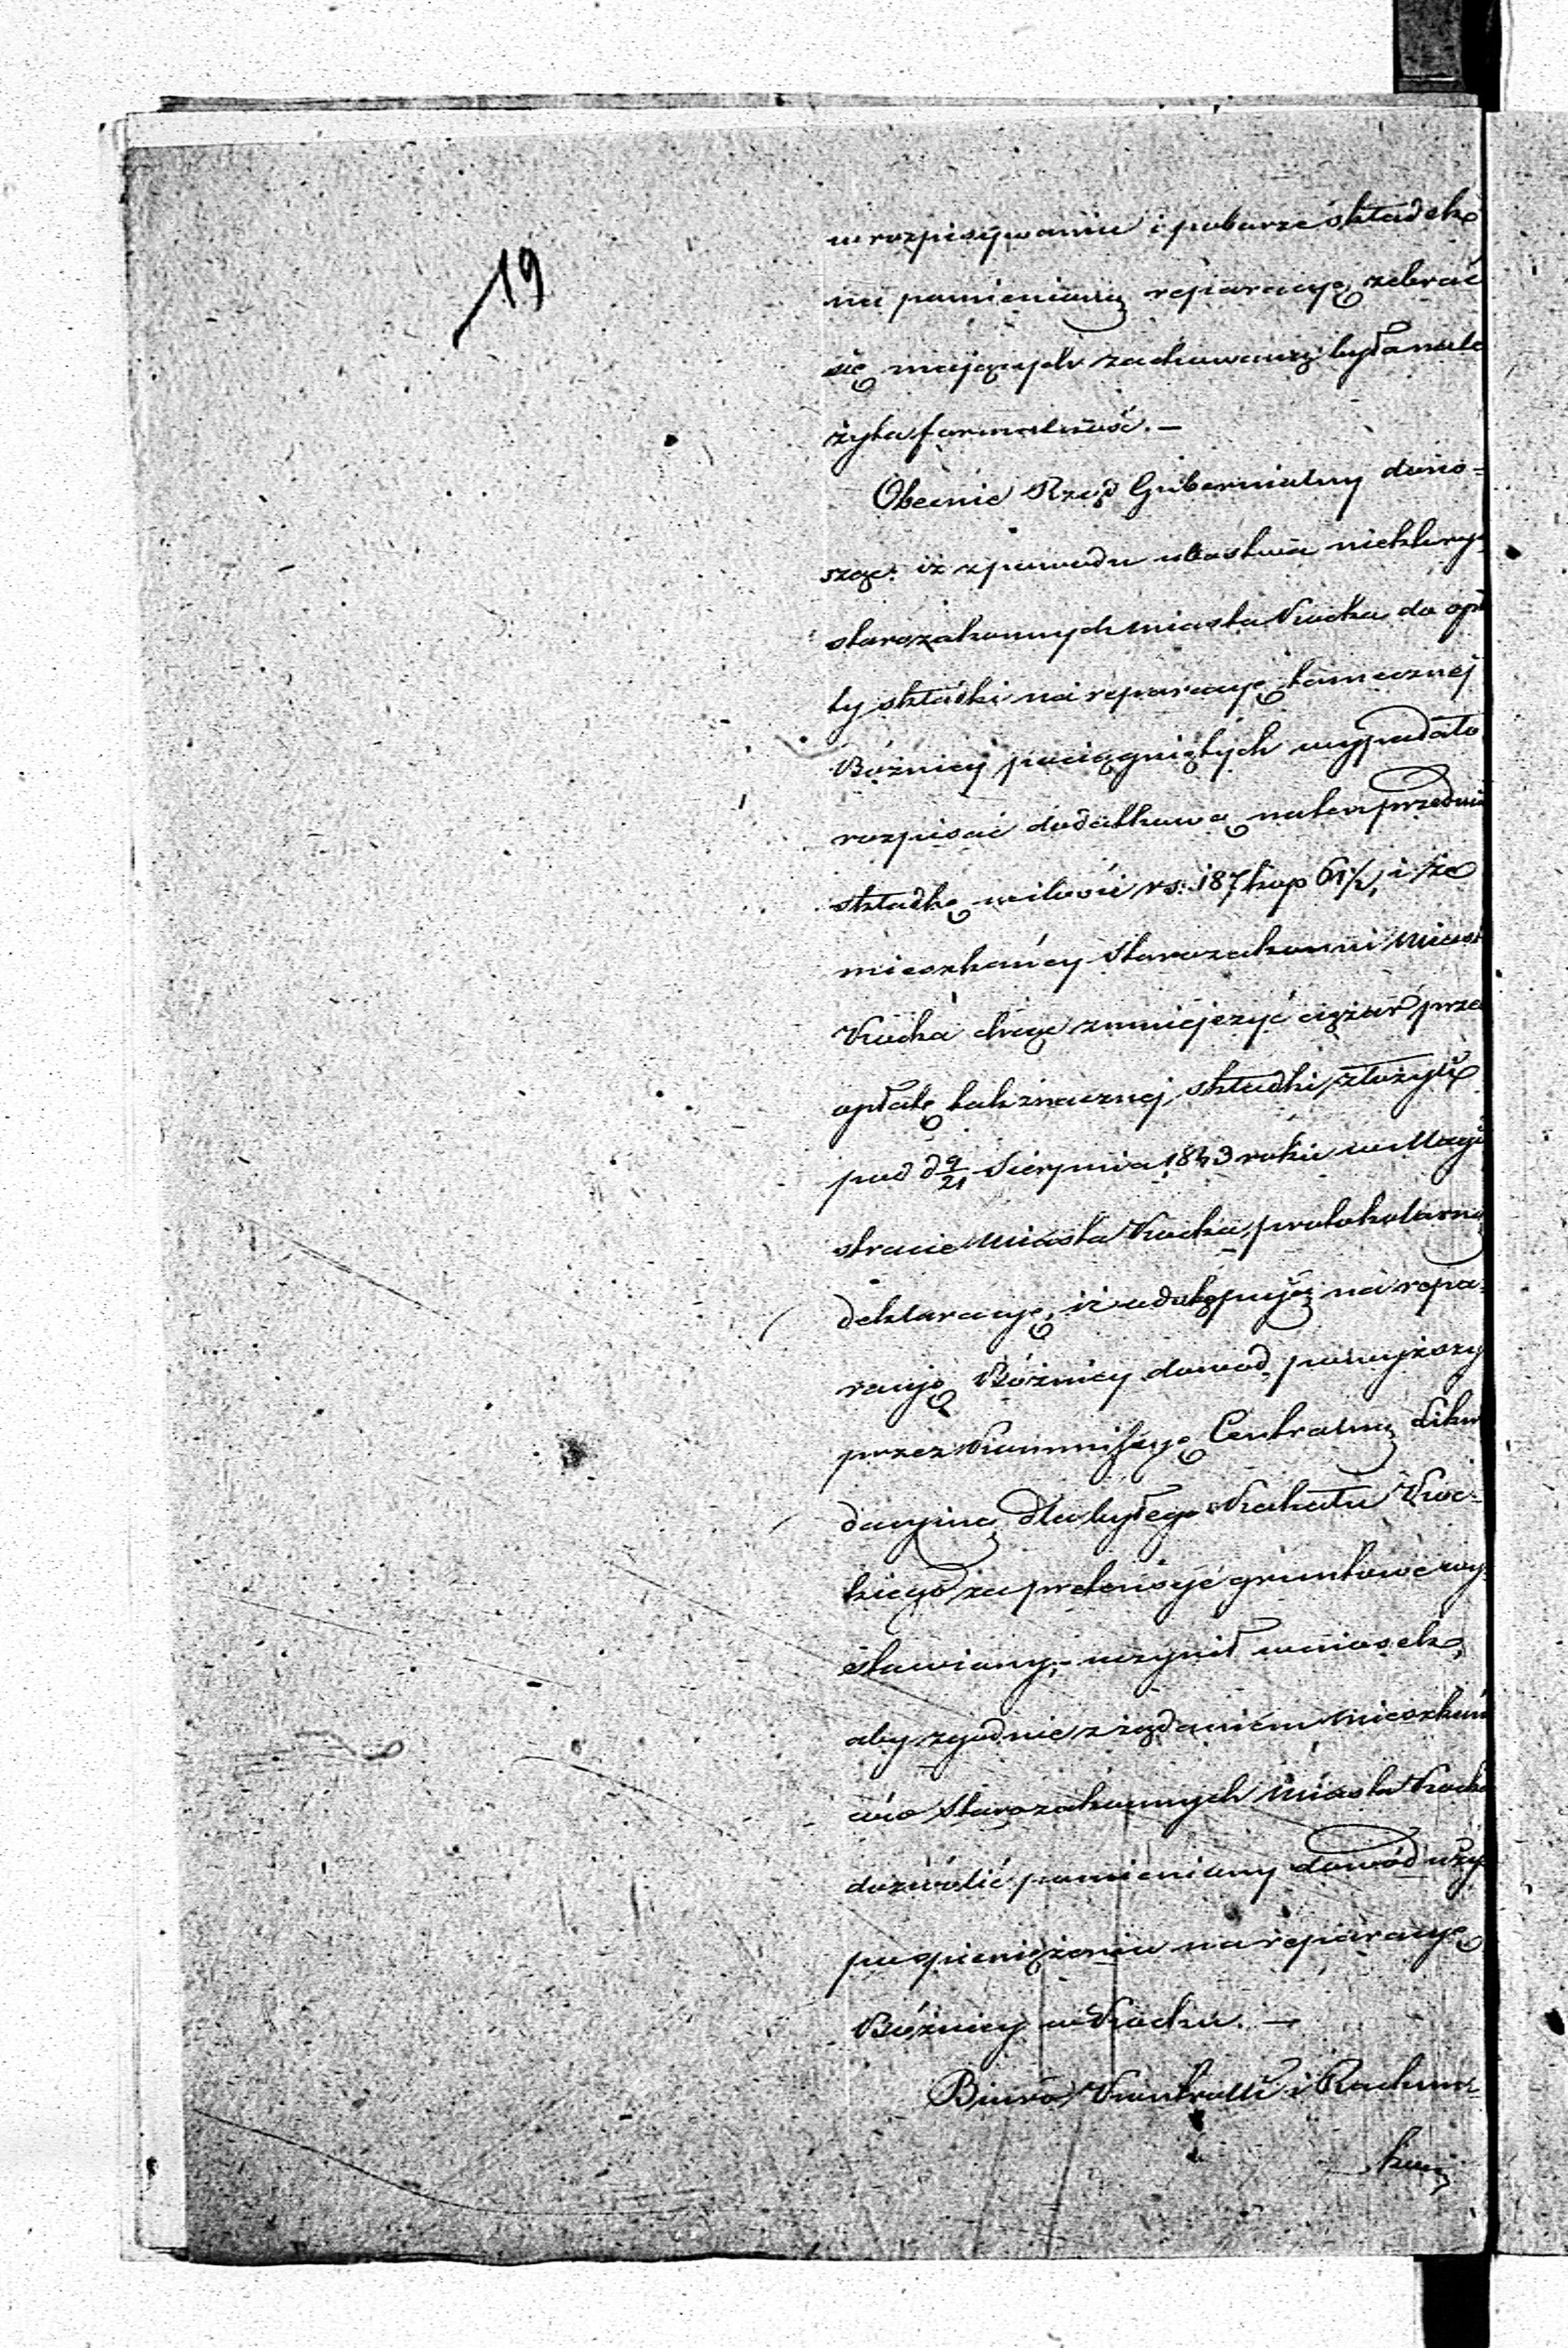 19
w rozpisywaniu i poborze składek
na pomienioną reparacyę zebrać
się mających zachowaną była nale
żyta formalność. —
Obecnie Rząd Gubernialny dono=
sząc: iż z powodu ubóstwa niektóry
starozakonnych miasta Kocka do opł
ty składki na reparacyę tamecznej
Bóżnicy pociągniętych wypadało
rozpisać dodatkową na ten przedmi
składkę w ilości rs: 187 kop 61 1/2, i że
mieszkańcy Starozakonni Miast
Kocka chcąc zmniejszyć ciężar prze
opłatę tak znacznej składki, złożyli
pod d 9/21 Sierpnia 1843 roku w Magi
stracie Miasta Kocka, protokolarną
deklaracyę, iż odstępują na repa=
racyę Bóżnicy dowod, powyższy
przez Kommissyę Centralną Likwi
dacyiną dla byłego Kahału Koc=
kiego za pretensye gruntowe wy=
stawiony, – uczynił wniosek,
aby zgodnie z żądaniem Mieszkań
ców Starozakonnych Miasta Kocka
dozwolić pomieniony dowód użyć
po spieniężeniu na reparacyę
Bóżnicy w Kocku. —
Biuro Kontrolli i Rachun=
kowe